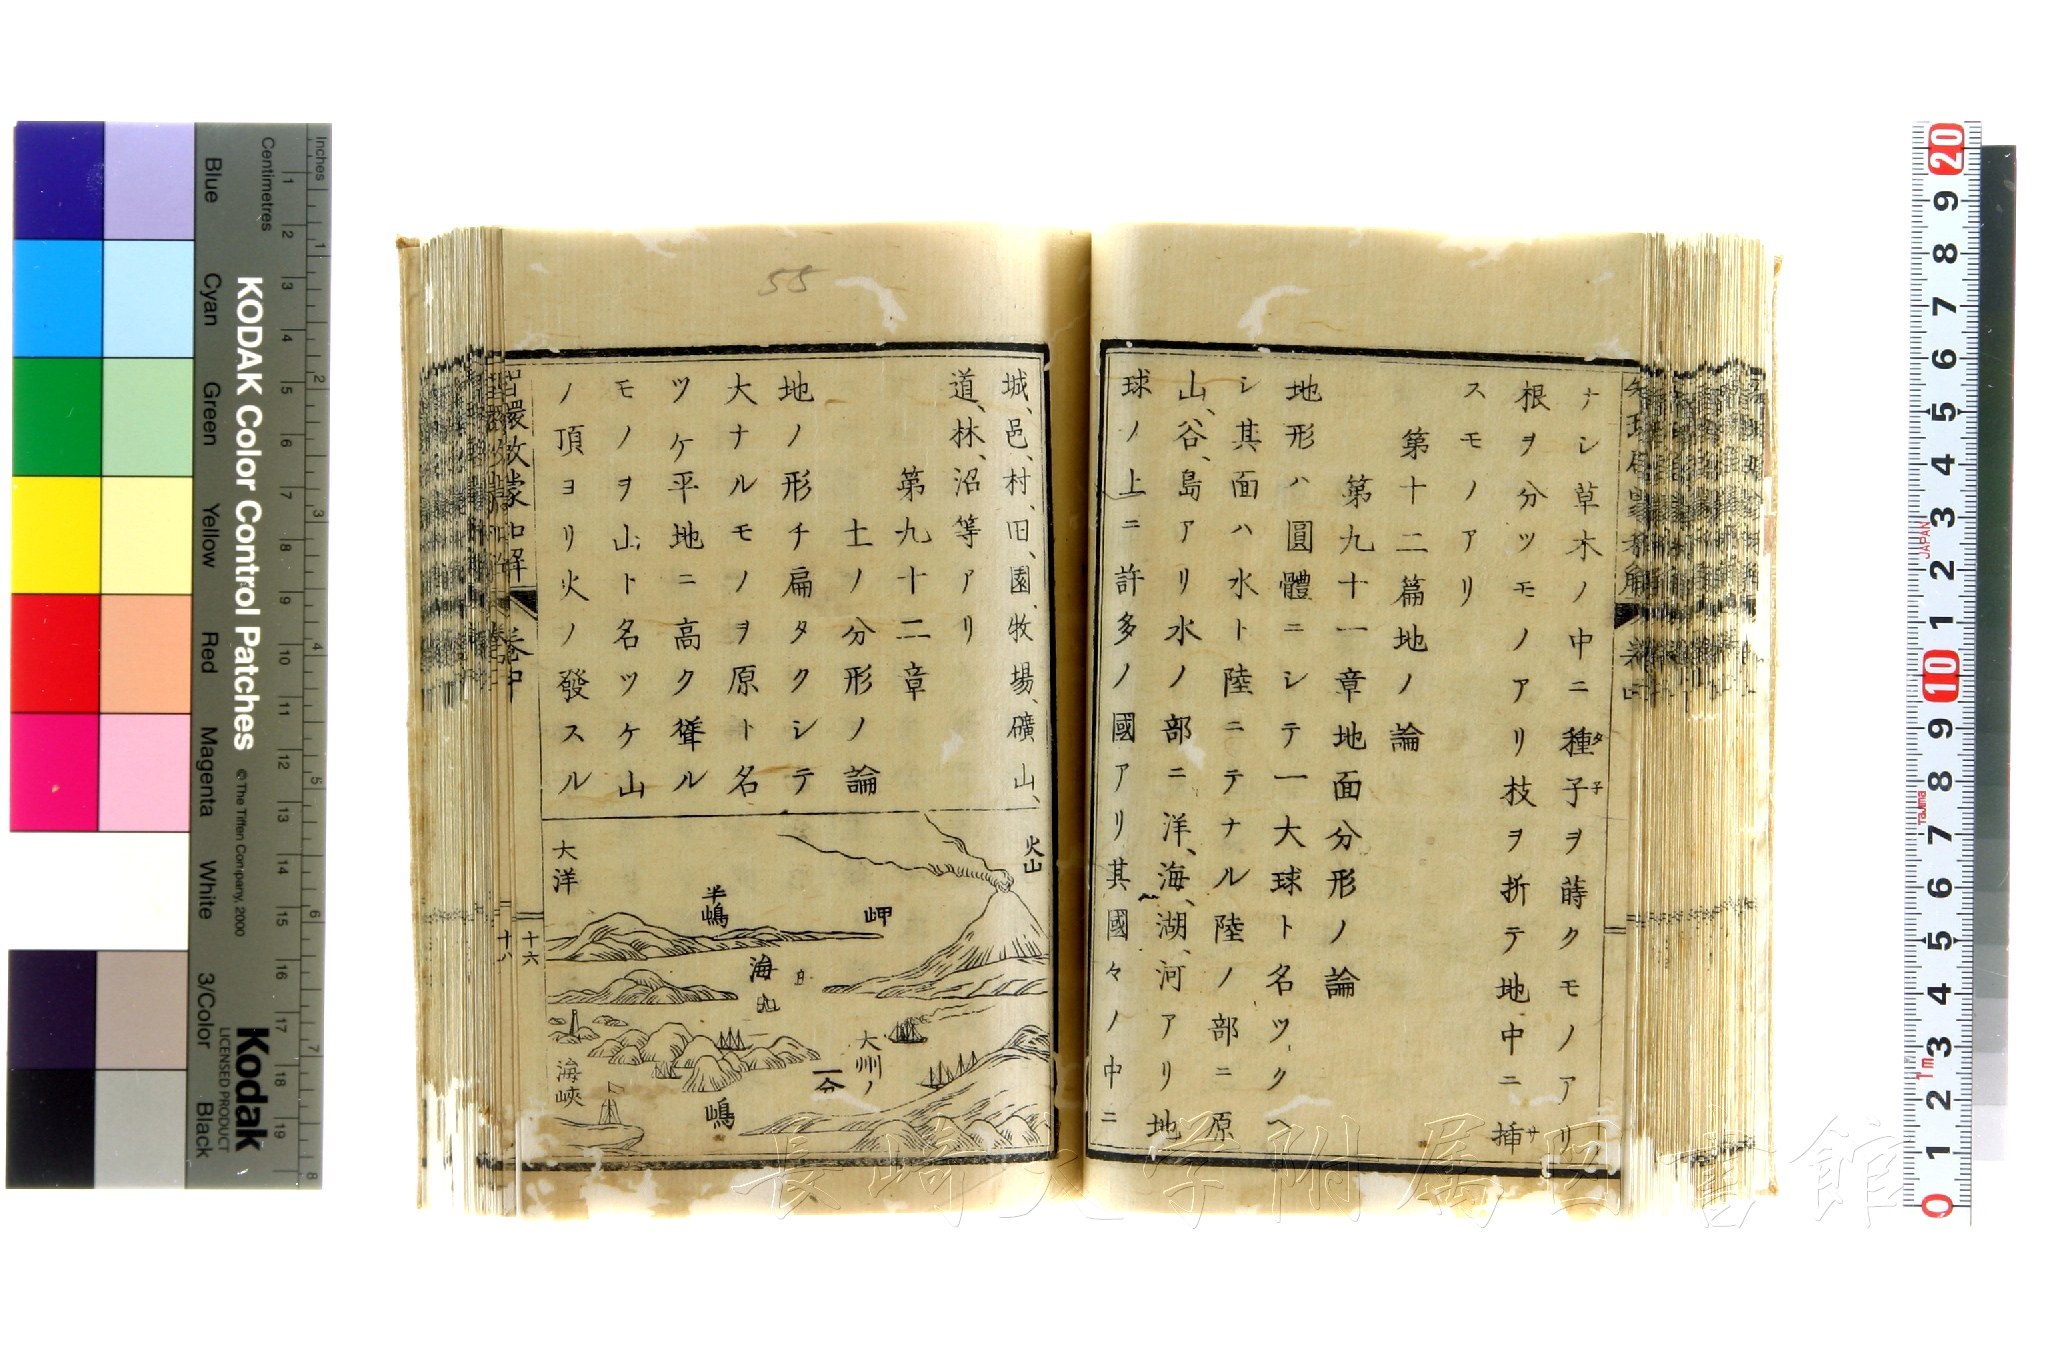 ナシ草木ノ中ニ種子ヲ蒔クモノアリ
タ子
根ヲ分ツモノアリ枝ヲ折テ地中ニ挿
サ
スモノアリ
第十二篇地ノ論
第九十一章地面分形ノ論
地形ハ圓體ニシテ一大球ト名ツクヘ
シ其面ハ水ト陸ニテナル陸ノ部ニ原
山、谷、島アリ水ノ部ニ洋、海、湖、河アリ地
球ノ上ニ許多ノ國アリ其國々ノ中ニ
城、邑、村、旧、園、牧場、礦山、
道、林、沼等アリ
第九十二章
土ノ分形ノ論
地ノ形チ扁タクシテ
大ナルモノヲ原ト名
ツケ平地ニ高ク聳ル
モノヲ山ト名ツケ山
ノ頂ヨリ火ノ發スル
火山
岬
半嶋
大洋
海
大州ノ
一分
嶋
海峽
十六
十八
卷中
55
長崎大学附属図書館
Inches
Centimetres
KODAK Color Control Patches
© The Tiffen Company, 2000
Kodak
LICENSED PRODUCT
Blue
Cyan
Green
Yellow
Red
Magenta
White
3/Color
Black
1 2 3 4 5 6 7 8 9 10 11 12 13 14 15 16 17 18 19
1 2 3 4 5 6 7 8
20 9 8 7 6 5 4 3 2 1 10 9 8 7 6 5 4 3 2 1 0
JAPAN
Tajima
1m